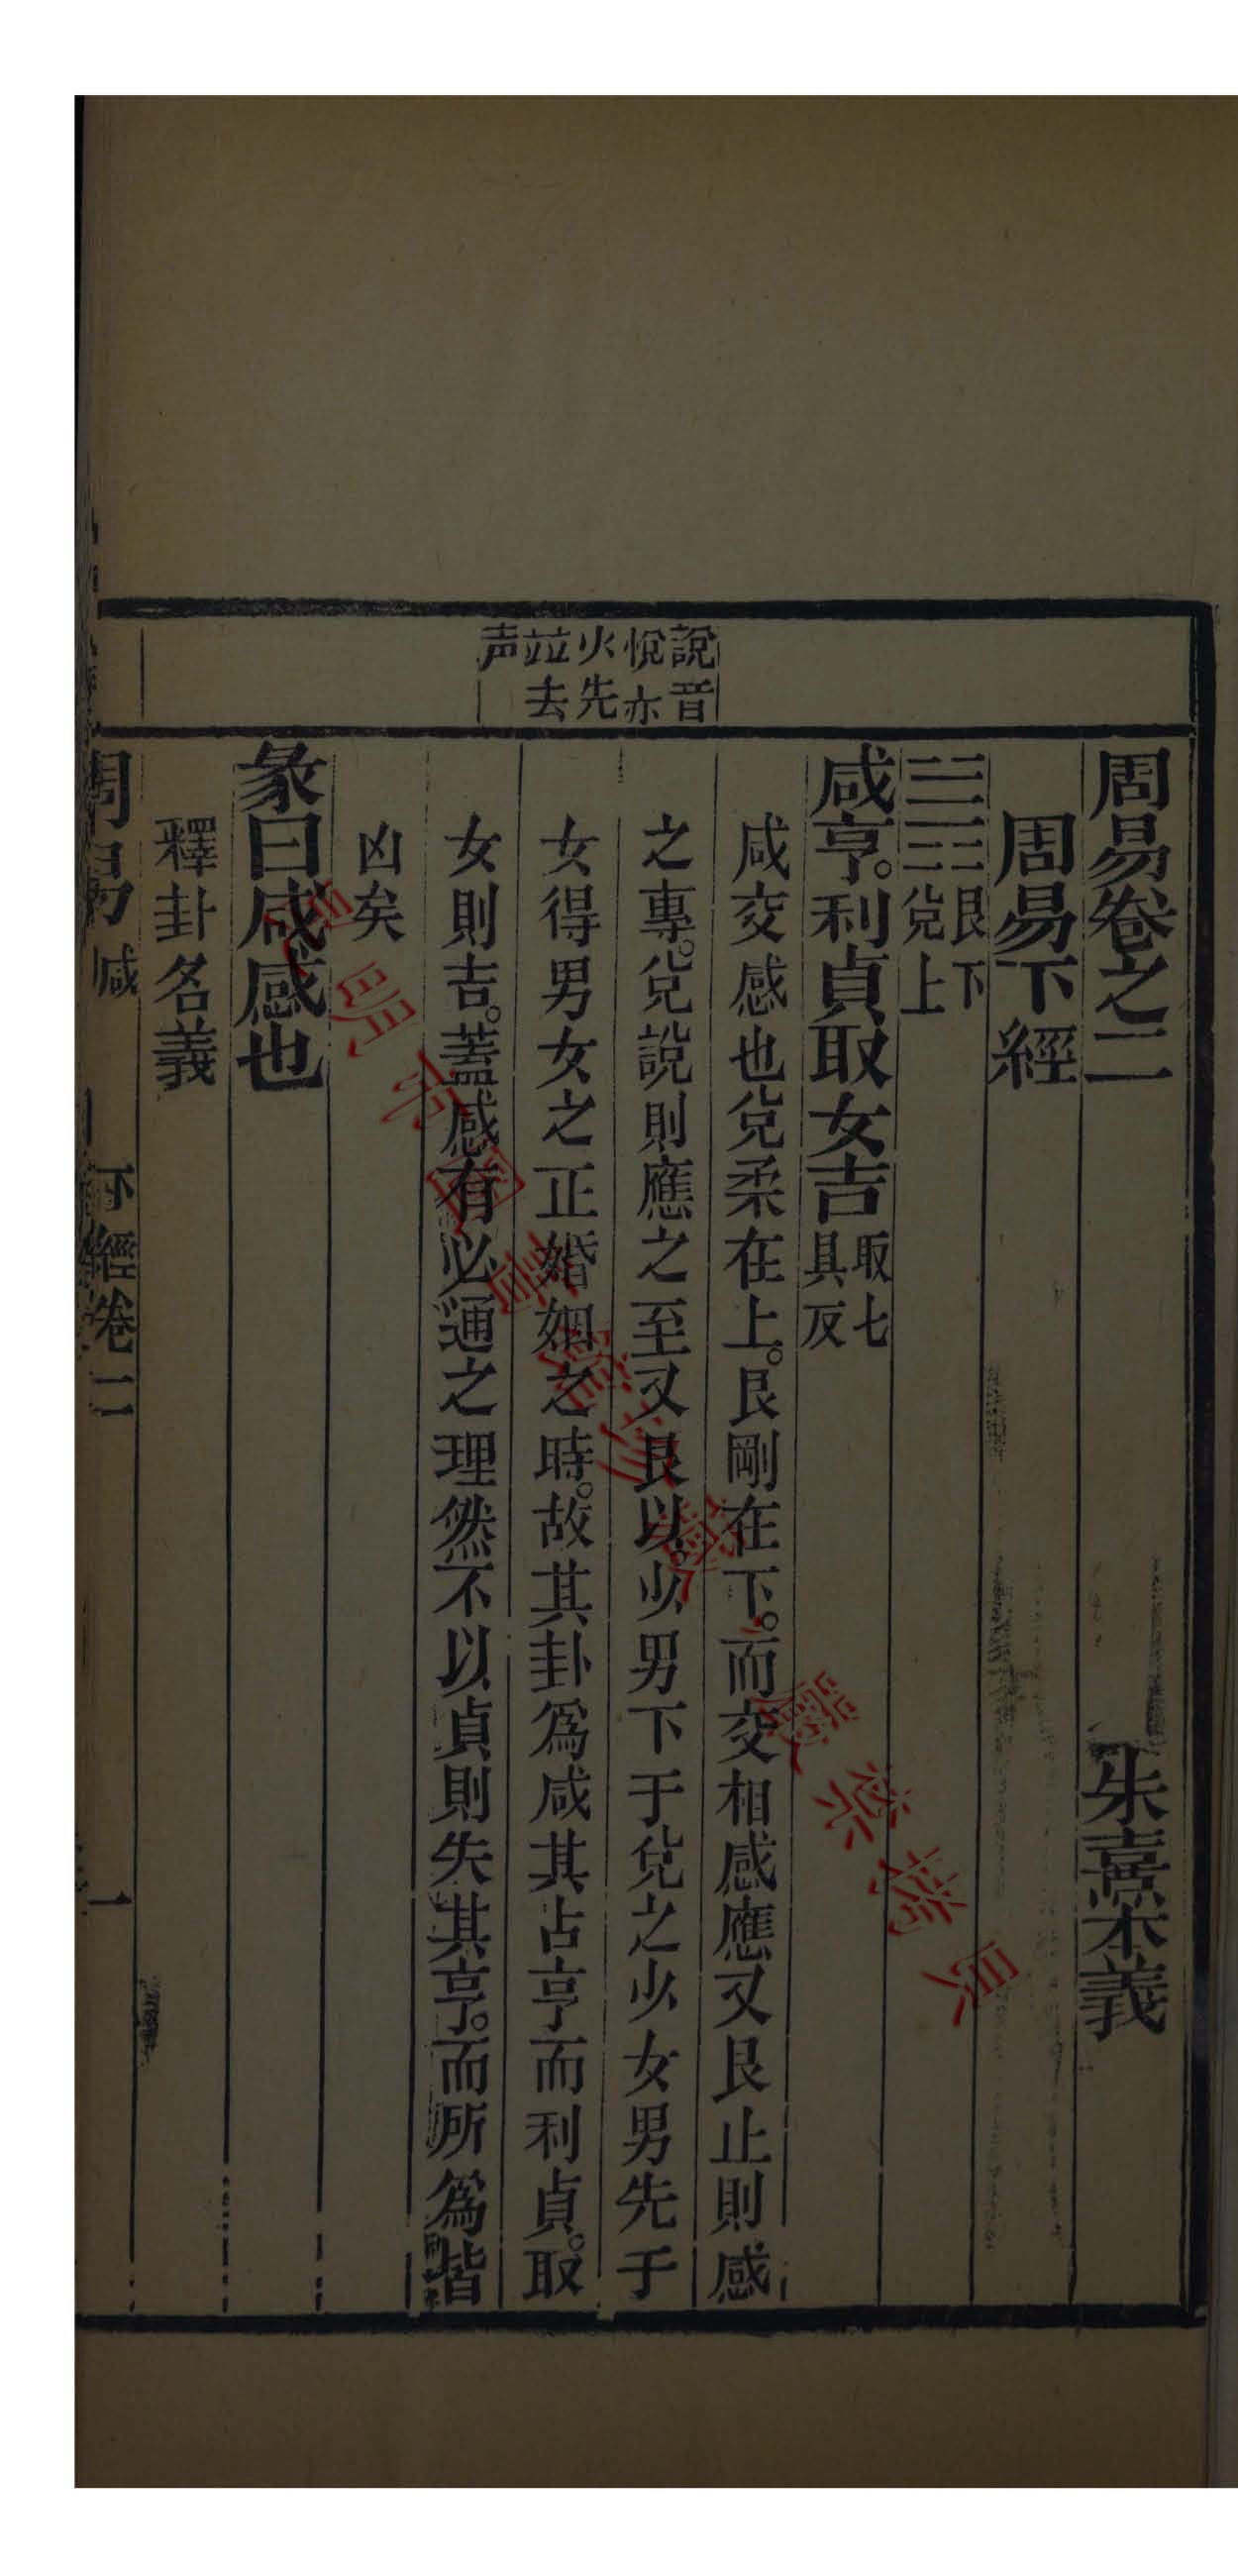 周易卷之二
朱熹本義
周易下經
艮下
兌上
咸亨。利貞取女吉
取七
具反
咸交感也兌柔在上。艮剛在下。而交相感應又艮止則感
之專。兌說則應之至又艮以。少男下于兌之少女男先于
女得男女之正婚姻之時。故其卦為咸其占亨而利貞。取
女則吉。蓋感有必通之理然不以貞則失其亨。而所為皆
凶矣
彖曰咸感也
釋卦名義
說音
悅亦
火先
竝去
声
周易
咸
下經卷二
一
嚴禁複製